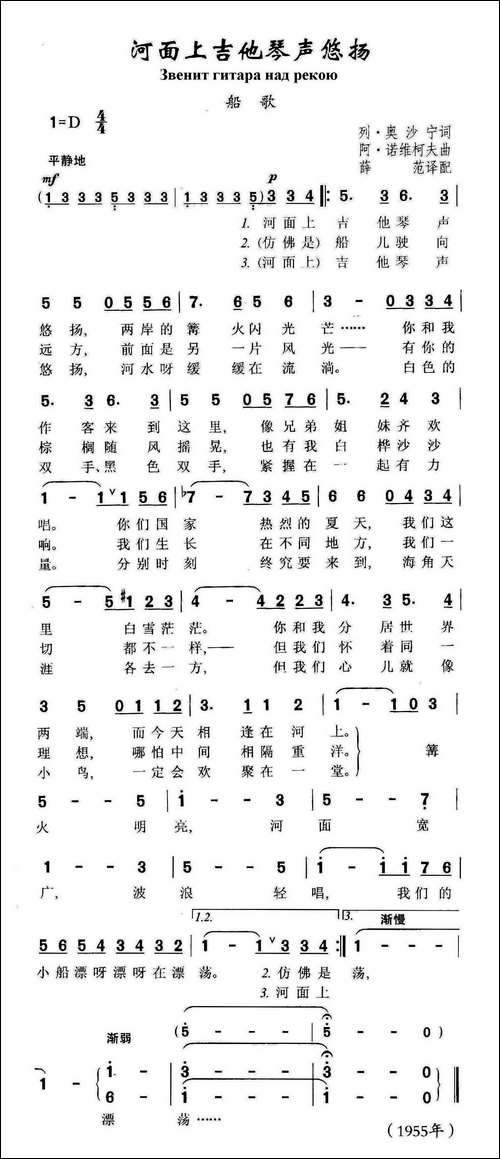 河面上吉他琴声悠扬
Звенит гитара над рекою
船 歌
1=D 4/4
列·奥沙宁词
阿·诺维柯夫曲
薛 范译配
平静地
mf p
(1 3 3 3 3 5 3 3 3 | 1 3 3 3 3 5) 3 3 4 | 5. 3 6. 3 |
1. 河 面 上 吉 他 琴 声
2. (仿 佛 是) 船 儿 驶 向
3. (河 面 上) 吉 他 琴 声
5 5 0 5 5 6 | 7. 6 5 6 | 3 - - 0 | 0 3 3 4 |
悠 扬, 两 岸 的 篝 火 闪 光 芒…… 你 和 我
远 方, 前 面 是 另 一 片 风 光—— 有 你 的
悠 扬, 河 水 呀 缓 缓 在 流 淌。 白 色 的
5. 3 6. 3 | 5 5 0 5 7 5 | 5. 2 4 3 |
作 客 来 到 这 里, 像 兄 弟 姐 妹 齐 欢
棕 榈 随 风 摇 晃, 也 有 我 白 桦 沙 沙
双 手、黑 色 双 手, 紧 握 在 一 起 有 力
1 - 1 1 5 6 | ♭7 - 7 3 4 5 | 6. 4 6 6 5 4 |
唱。 你 们 国 家 热 烈 的 夏 天, 我 们 这
响。 我 们 生 长 在 不 同 地 方, 我 们 一
量。 分 别 时 刻 终 究 要 来 到, 海 角 天
5 - 5 #1 2 3 | 4 - 4 2 2 3 | 4. 3 5. 4 |
里 白 雪 茫 茫。 你 和 我 分 居 世 界
切 都 不 一 样,—— 但 我 们 怀 着 同 一
涯 各 去 一 方, 但 我 们 心 儿 就 像
3 5 0 1 1 2 | 3. 1 1 2 | 1 - 1 0 3 |
两 端, 而 今 天 相 逢 在 河 上。
理 想, 哪 怕 中 间 相 隔 重 洋。 篝
小 鸟, 一 定 会 欢 聚 在 一 堂。
5 - - 5 | 1 - - 3 | 5 - - 7 |
火 明 亮, 河 面 宽
1 - - 3 | 5 - - 5 | 1 - - 1 1 7 6 |
广, 波 浪 轻 唱, 我 们 的
1.2. 3. 渐慢
5 6 5 4 3 4 3 2 | 1 - 1 3 3 4 :| 1 - - - |
小 船 漂 呀 漂 呀 在 漂 荡。 2. 仿 佛 是 荡,
3. 河 面 上
渐弱
(5 - - - | 5 - - 0)
1 - 1 - | 3 - - - | 3 - - 0
6 - | 1 - - - | 1 - - 0
漂 荡……
(1955年)